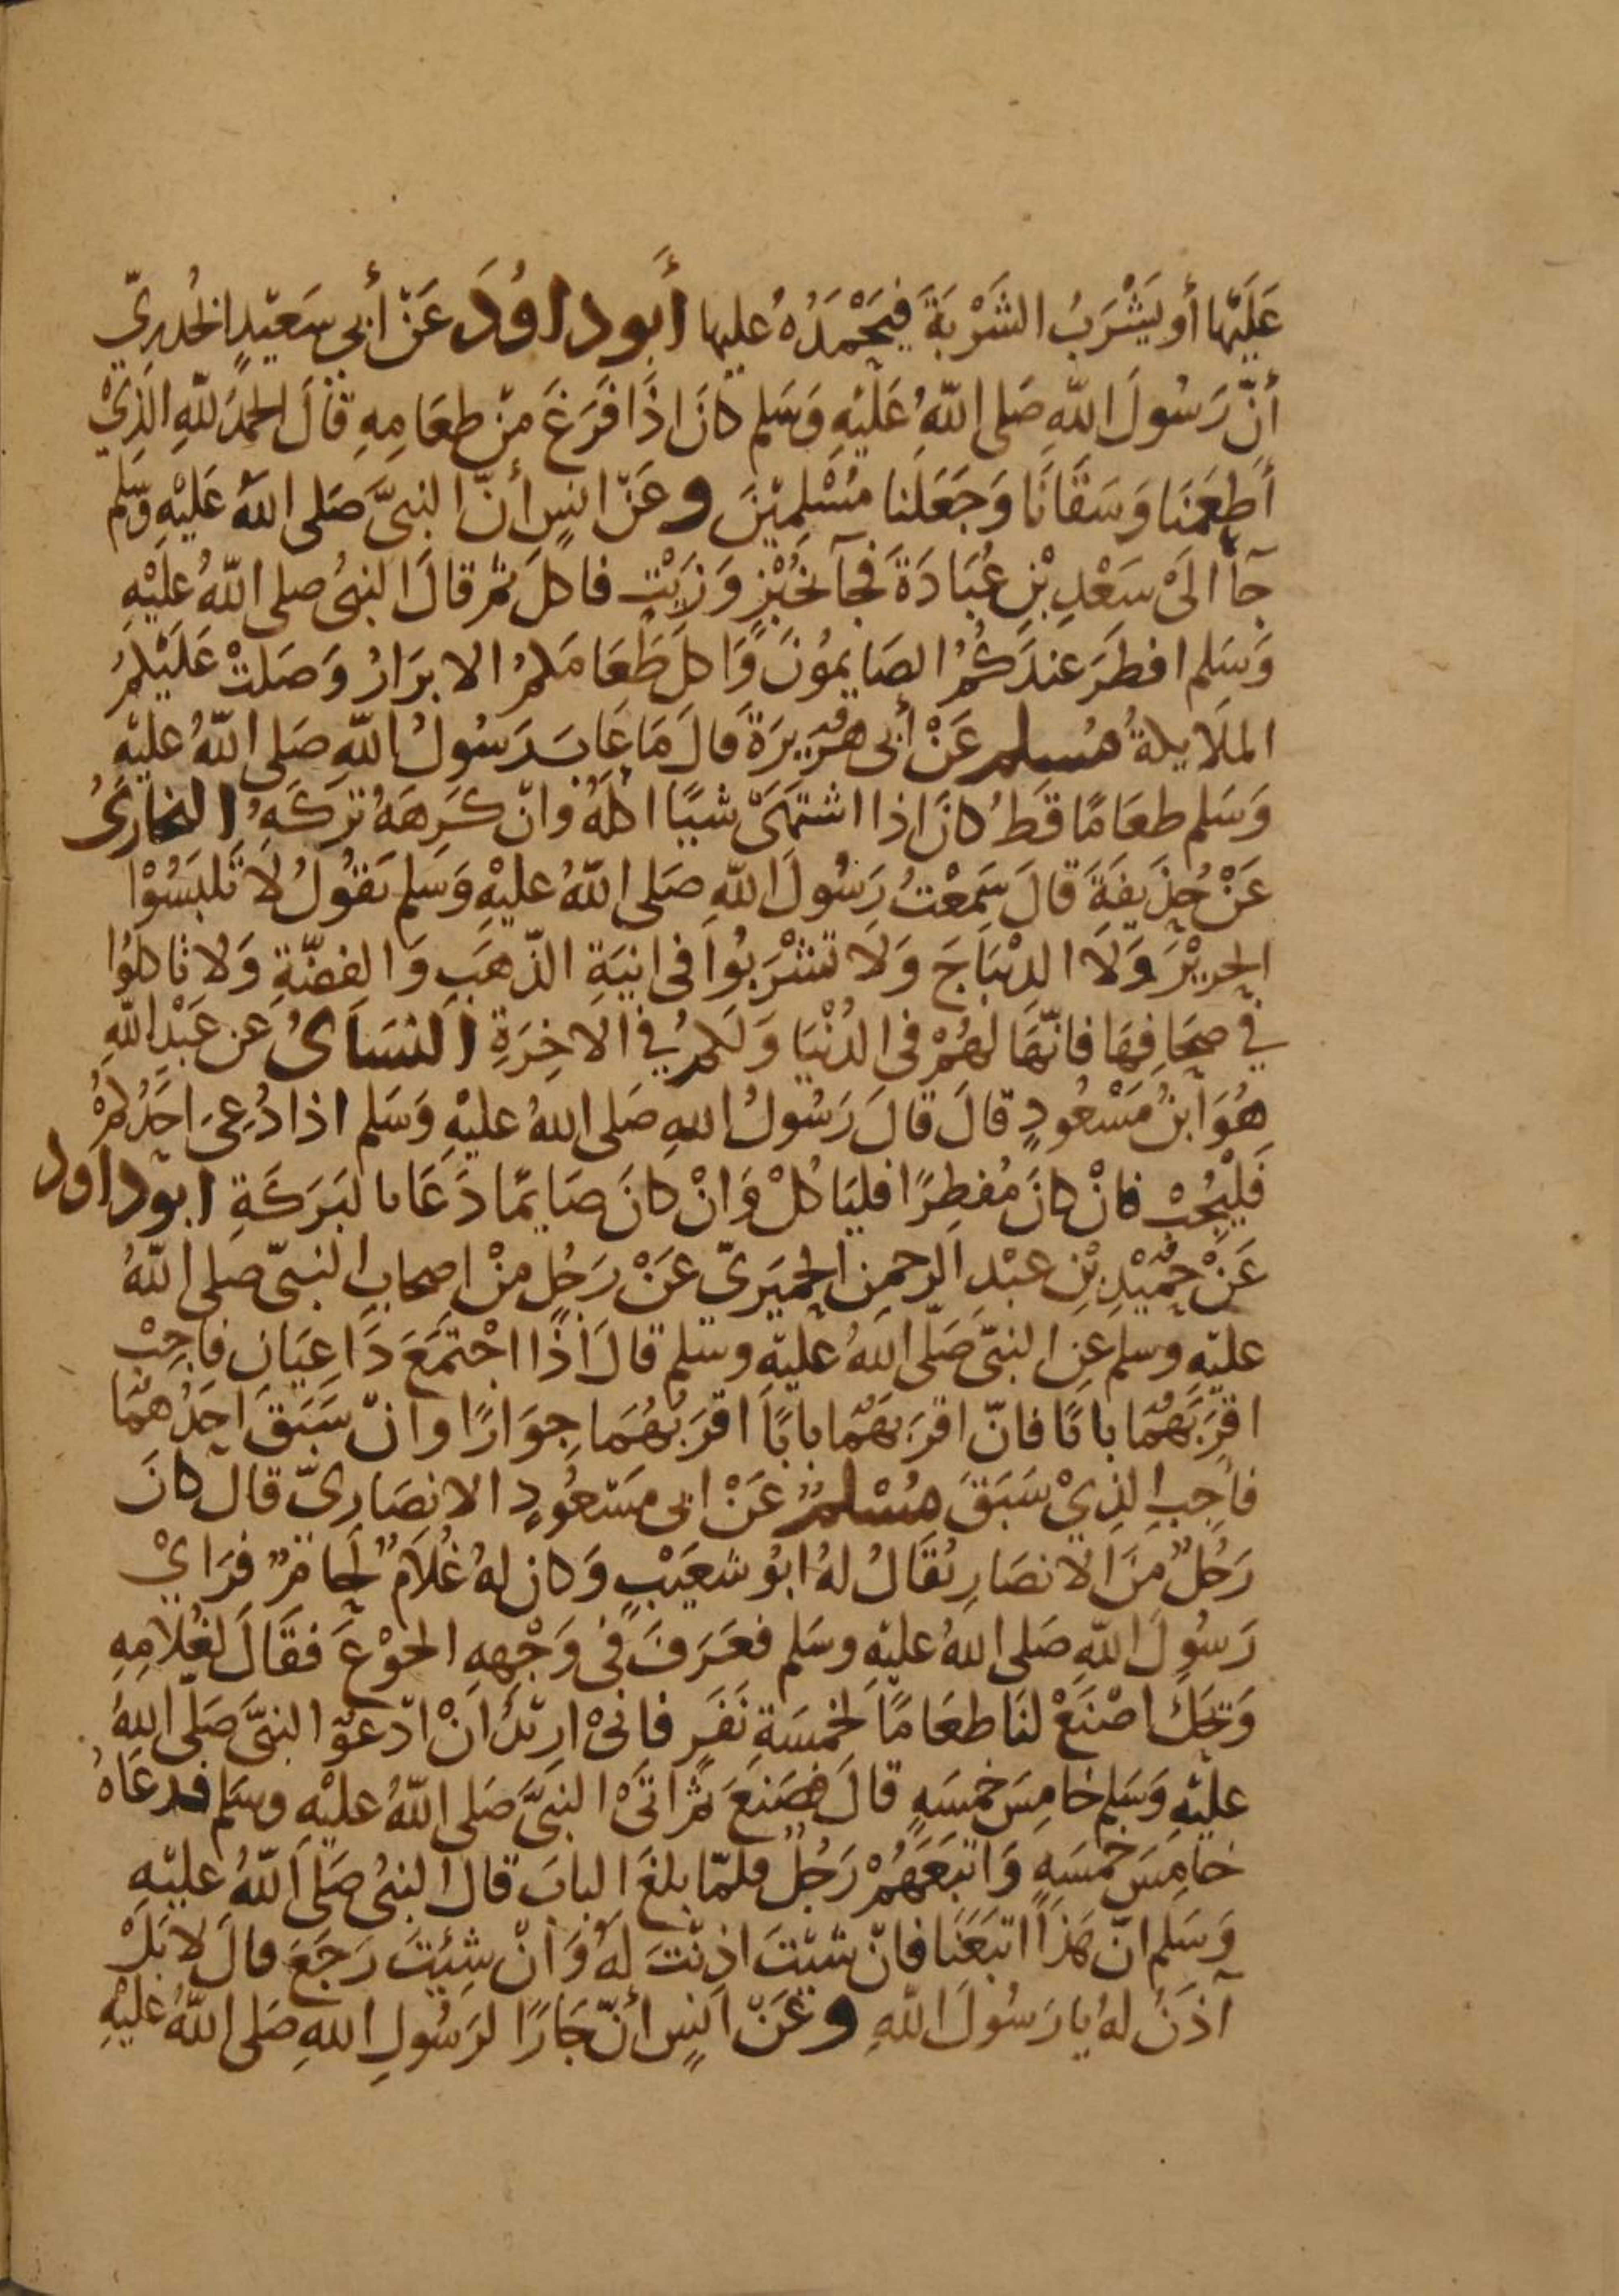 عَلَيْهَا أو يَشْرَبُ الشَرْبَةَ فَيَحْمَدُهُ عليها أَبوداوُدَ عَنْ أَبي سَعيْدٍ الخُدرِيّ
أنّ رَسُولَ اللّهِ صَلى اللّهُ عَلَيْهِ وَسَلم كانَ اذَا فَرَغَ مِنْ طعَامِهِ قَالَ الحمدُ للّهِ الذِيْ
أطعَمَنَا وَسَقَانَا وَجَعَلنا مُسْلِمِيْنَ وعَنْ انسٍ أنّ النبيَّ صَلى اللهُ عَلَيْهِ وَسَلم
جآ الَىْ سَعْدِ بْنِ عُبَادَةَ فجآ بخُبْزٍ وَزَيْتٍ فاكلَ ثم قالَ النبيُ صلى اللّهُ عليْهِ
وَسَلم افطَرَ عندَكُمُ الصَايمُونَ وَاكلَ طَعَامَكمُ الابرَارُ وَصَلتْ عَلَيْكمُ
الملَايكةُ مُسلم عَنْ أبى هُرَيرَةَ قالَ مَا عَابَ رَسُولُ اللّهِ صَلى اللّهُ عليْهِ
وَسَلم طعَامًا قَطُ كانَ اذا اشتهَىْ شيًا اكلَهُ وانْ كَرِهَهُ تركَهُ البخارىُ
عَنْ حُذَيفَةَ قالَ سَمِعْتُ رَسُولَ اللّهِ صَلى اللّهُ عليْهِ وَسَلم يَقُولُ لَا تَلبَسُوْا
الحريْرَ وَلَا الدِيْبَاجَ وَلَا تَشْرَبُوا فى انيَةِ الذّهَبِ وَالفضّةِ وَلا تاكلوُا
في صحَافِهَا فانّهَا لَهُمْ فى الدُنْيَا وَلَكمُ في الاخِرَةِ النسَاىُ عن عَبْدِ اللّهِ
هُوَ ابنُ مَسْعُودٍ قالَ قالَ رَسُولُ اللهِ صَلى اللهُ عليْهِ وَسَلم اذا دُعِىَ احَدُكمْ
فَليُجِبْ فانْ كانَ مُفطِرًا فليَاكُلْ وَانْ كانَ صَايمًا دَعَا بالبَرَكَةِ ابوداود
عَنْ حُمَيْدِ بْنِ عبْدِ الرحمنِ الحِميَرىّ عَنْ رَجُلٍ منْ اصحابِ النبىّ صلى اللّهُ
عليْهِ وسلم عنِ النبىّ صَلّى اللهُ عليْهِ وسَلم قالَ اذَا اجْتمَعَ دَاعِيَانِ فاجِبْ
اقرَبَهُمَا بابًا فانّ اقرَبَهُمَا بابًا اقرَبُهُمَا جِوَارًا وانْ سَبَقَ احَدُهُمَا
فاجِبِ الذِيْ سَبَقَ مُسْلمٌ عَنْ ابى مَسْعُودٍ الانصَارِىّ قالَ كانَ
رَجُلٌ منَ الانصَارِ يُقَالُ لهُ ابوُ شعَيْبٍ وَكان لهُ غُلَامٌ لحامٌ فرَايْ
رَسُولَ اللّهِ صَلى اللهُ عليْهِ وسَلم فعَرَفَ فى وَجْههِ الجوْعَ فقَالَ لغُلامِهِ
وَيْحَكَ اصْنَعْ لنَا طعَامًا لخمسَةِ نَفَرٍ فانىْ ارِيْدُ انْ ادْعوَ النبىَّ صَلّى اللهُ
عليْهِ وَسَلم خامِسَ خمسَهٍ قالَ فصَنعَ ثم اتَىْ النبىَّ صَلى اللّهُ عليْهِ وسَلم فدعَاهُ
خامِسَ خمسَهٍ وَاتبَعَهُمْ رَجُلٌ فلمّا بلغَ البابَ قالَ النبىُ صَلى اللّهُ عليْهِ
وَسَلم انّ هَذَا اتبَعَنَا فانْ شيْتَ اذِنْتَ لهُ وَانْ شِئيْتَ رَجَعَ قالَ لا بَلْ
آذَنُ لهُ يا رَسُولَ اللّهِ وعَنْ انسٍ أنّ جَارًا لرَسُولِ اللهِ صَلى اللّهُ عليْهِ